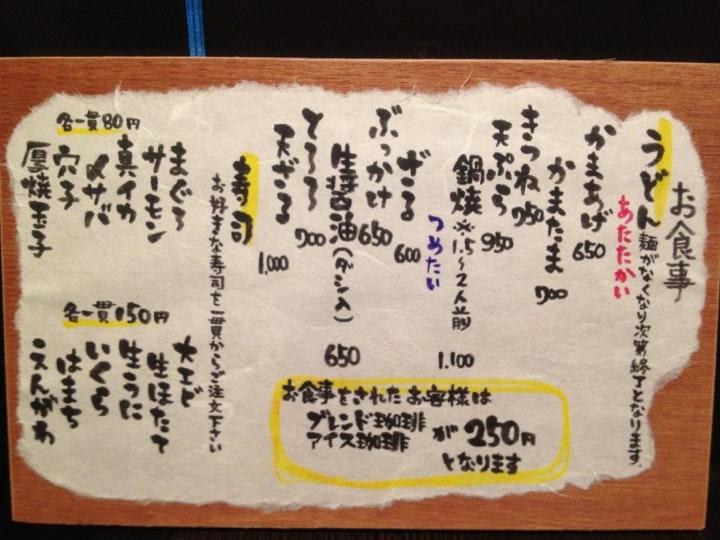 お食事
うどん 麺がなくなり次第終了となります。
あたたかい
かまあげ 650
かまたま 700
きつね 750
天ぷら 950
鍋焼 ※1.5〜2人前 1.100
つめたい
ざる 600
ぶっかけ 650
生醤油(ダシ入) 650
とろろ 700
天ざる 1.000
寿司 お好きな寿司を一貫からご注文下さい
各一貫80円
まぐろ
サーモン
真イカ
〆サバ
穴子
厚焼玉子
各一貫150円
大エビ
生ほたて
生うに
いくら
はまち
えんがわ
お食事をされたお客様は
ブレンド珈琲
アイス珈琲
が250円
となります